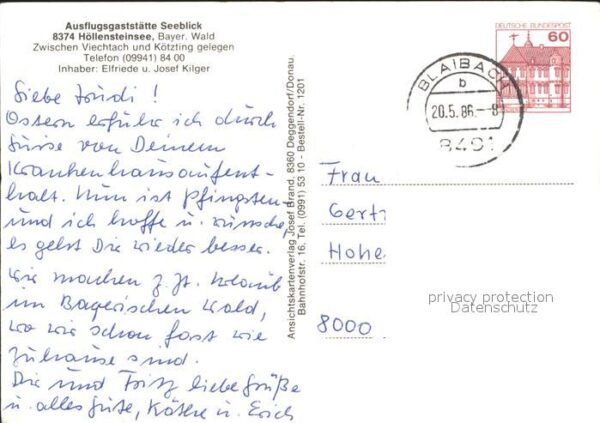 Ausflugsgaststätte Seeblick
8374 Höllensteinsee, Bayer. Wald
Zwischen Viechtach und Kötzting gelegen
Telefon (09941) 84 00
Inhaber: Elfriede u. Josef Kilger
Liebe Trudi!
Ostern erfuhr ich durch
von Deinem
Krankenhausaufent-
halt. Nun ist Pfingsten
und ich hoffe u. wünsche,
es geht Dir wieder besser.
Wir machen z. Zt. Urlaub
im Bayerischen Wald,
wo wir schon fast wie
zuhause sind.
Dir und Fritz liebe Grüße
u. alles Gute, Käthe u. Erich
Ansichtskartenverlag Josef Brand, 8360 Deggendorf/Donau,
Bahnhofstr. 16, Tel. (0991) 53 10 - Bestell-Nr. 1201
DEUTSCHE BUNDESPOST
60
BLAIBACH
b
20.5.86.-8
8491
Frau
Gert
Hohe
8000
privacy protection
Datenschutz